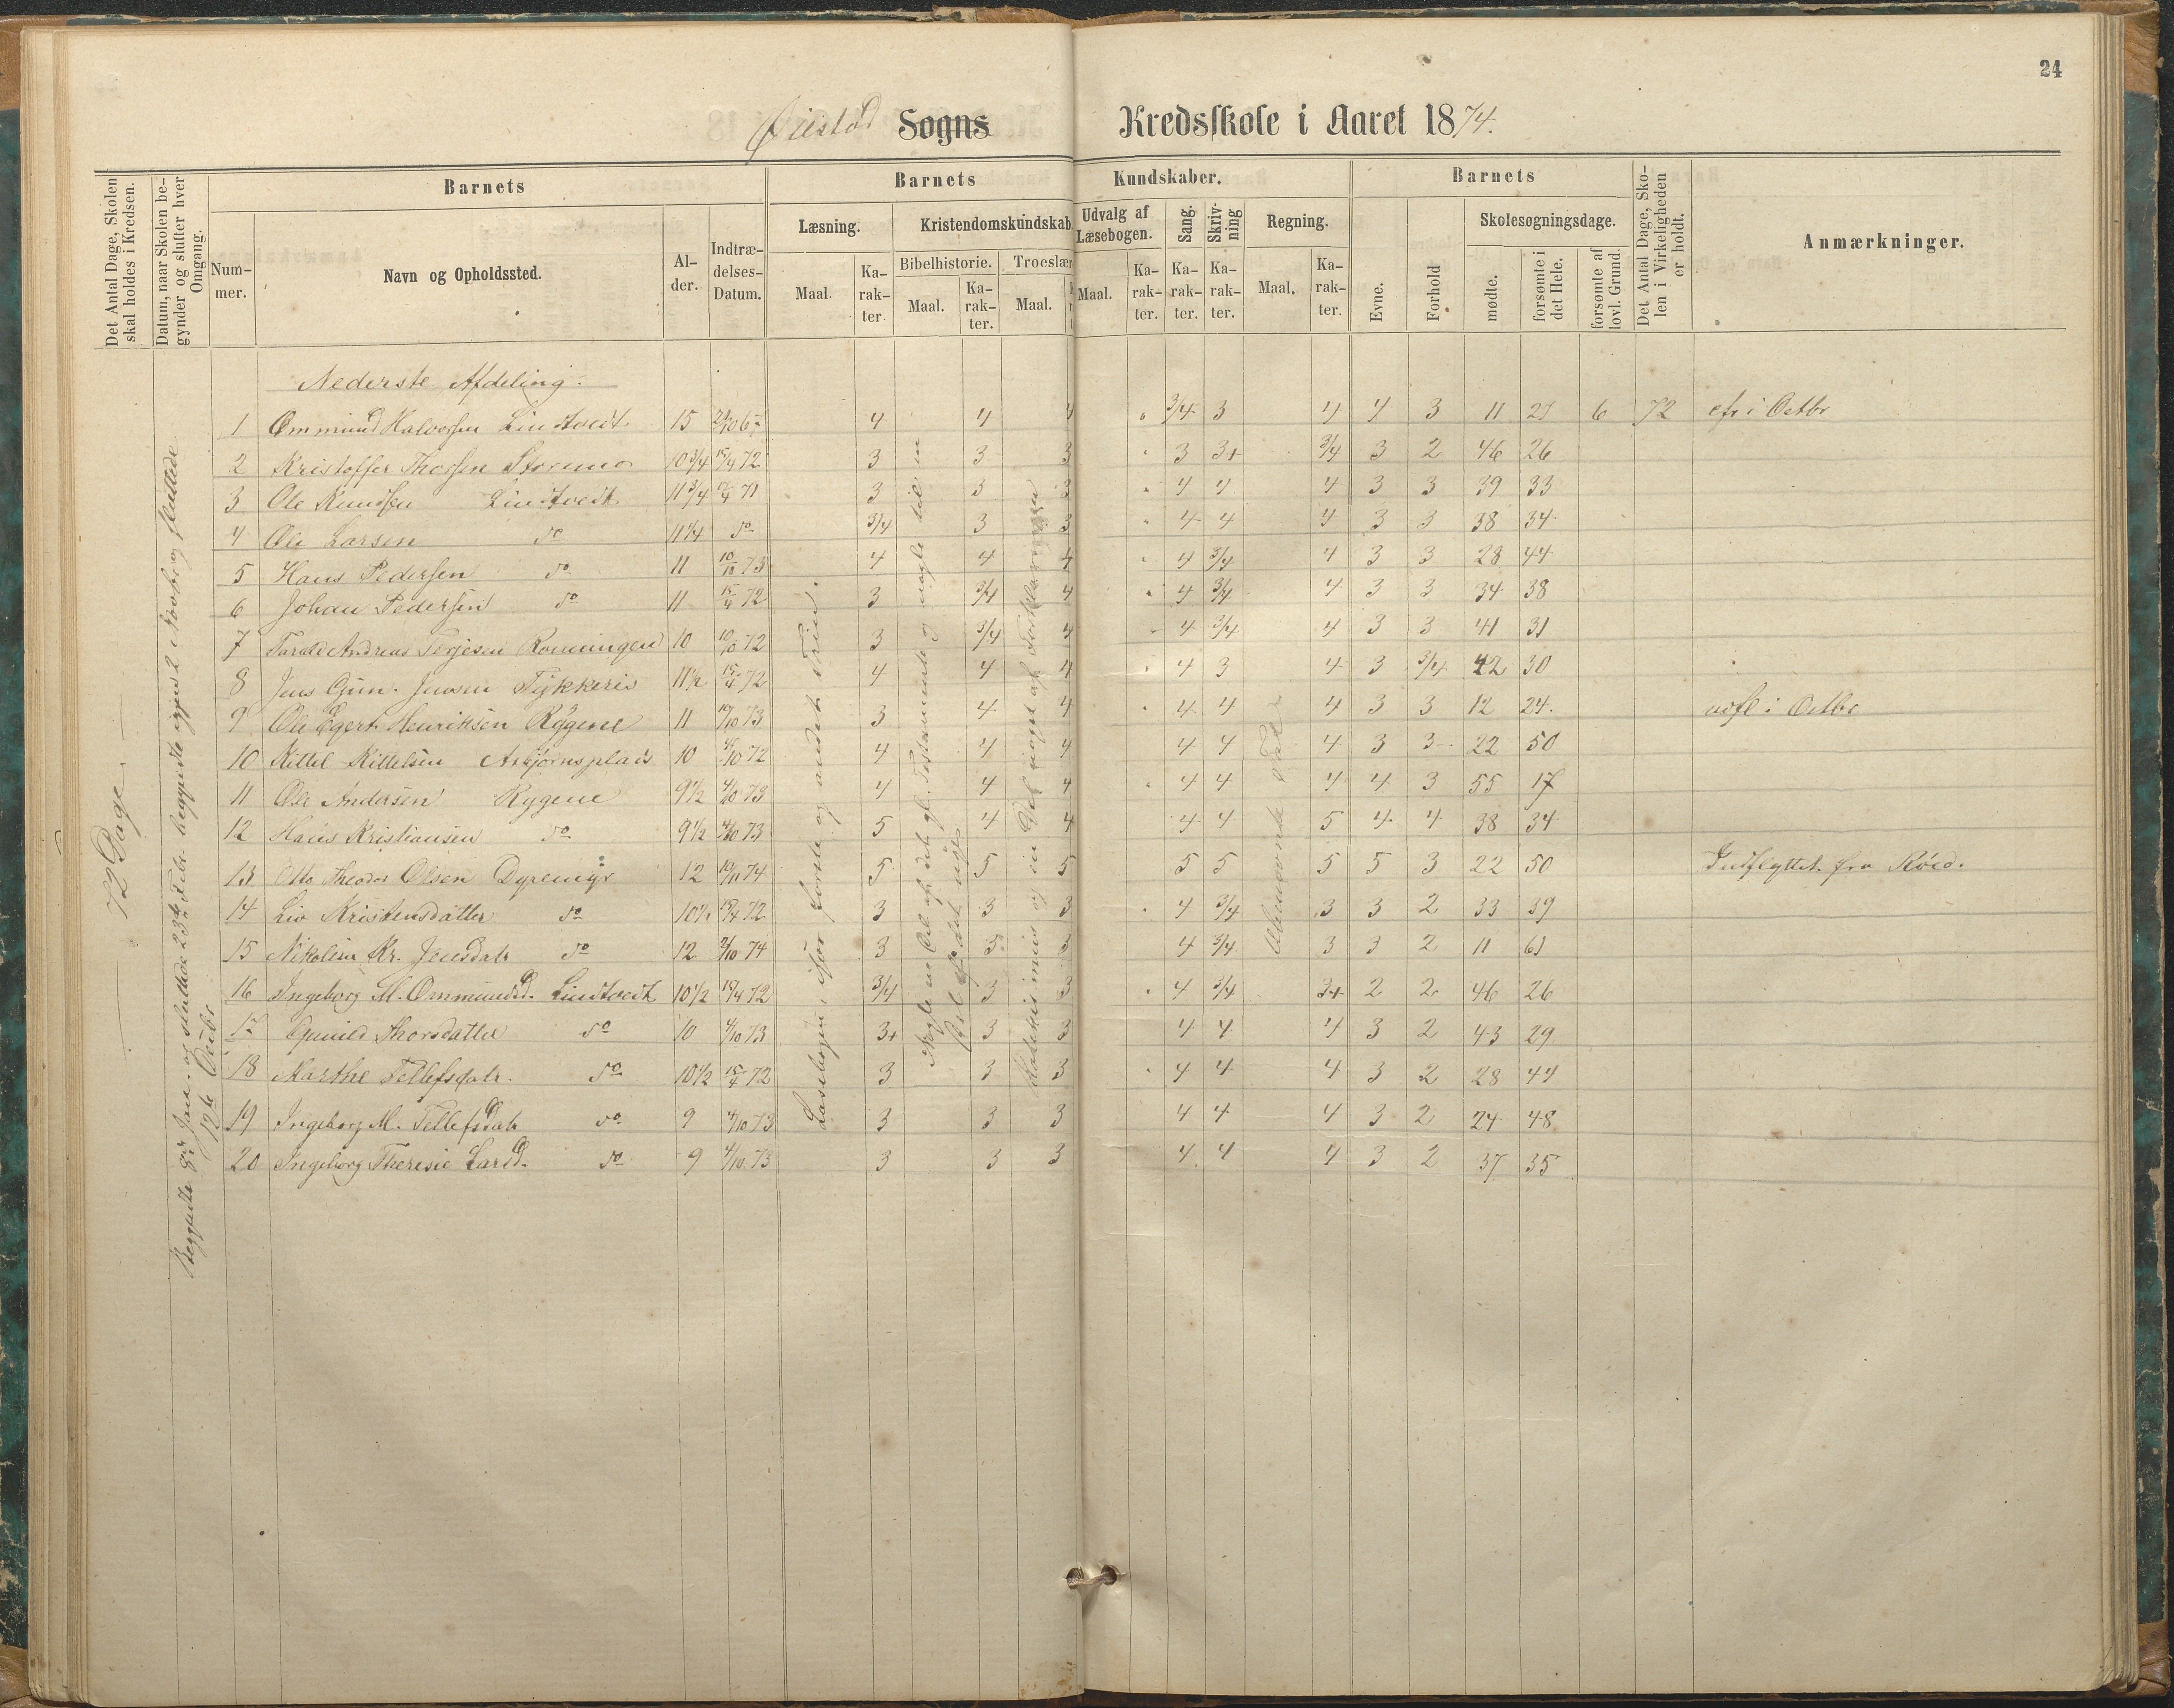 24
Øiestad Sogns Kredsskole i Aaret 1874.
Det Antal Dage, Skolen skal holdes i Kredsen.
Datum, naar Skolen begynder og slutter hver Omgang.
Barnets
Barnets Kundskaber.
Barnets
Det Antal Dage, Skolen i Virkeligheden er holdt.
Anmærkninger.
Nummer.
Navn og Opholdssted.
Alder.
Indtrædelses-Datum.
Læsning.
Kristendomskundskab
Udvalg af Læsebogen.
Sang.
Skrivning
Regning.
Evne.
Forhold
Skolesøgningsdage.
Bibelhistorie.
Troeslær
Maal.
Karakter
Maal.
Karakter.
Maal.
Maal.
Karakter.
Karakter.
Karakter.
Maal.
Karakter.
mødte.
forsømte i det Hele.
forsømte af lovl. Grund.
72 Dage.
Begyndte 8de Jan. og sluttede 23de Febr. begyndte igjen 2 Novbr og sluttede 19de Decbr
Læsebogen, især første og andet Trin.
Nogle en Del af det gl. Testamente og nogle til en Del af det nye
Katekismus og en Del noget af Forklaringen
Ubenævnte Tal
Nederste Afdeling.
1 Ommund Halvorsen Lindtvedt 15 4 4 4 3/4 3 4 4 3 11 27 6 72
2 Kristoffer Thorsen Storemo 10 3/4 15/4 72 3 3 3 3 3+ 3/4 3 2 46 26
3 Ole Knudsen Lindtvedt 11 3/4 17/4 71 3 3 3 4 4 4 3 3 39 33
4 Ole Larsen do 11 1/4 do 3/4 3 3 4 4 4 3 3 38 34
5 Hans Pedersen do 11 10/10 73 4 4 4 4 3/4 4 3 3 28 44
6 Johan Pedersen do 11 15/4 72 3 3/4 4 4 3/4 4 3 3 34 38
7 Tarald Andreas Terjesen Romningen 10 10/10 72 3 3/4 4 4 3/4 4 3 3 41 31
8 Jens Gun. Jensen Tykkeris 11 1/2 15/4 72 4 4 4 4 3 4 3 3/4 42 30
9 Ole Egert Henriksen Rygene 11 10/10 73 3 4 4 4 4 4 3 3 12 24.
10 Kittel Kittelsen Asbjørnsplads 10 4/10 72 4 4 4 4 4 4 3 3 22 50
11 Ole Andersen Rygene 9 1/2 4/10 73 4 4 4 4 4 4 4 3 55 17
12 Hans Kristiansen do 9 1/2 4/10 73 5 4 4 4 4 5 4 4 38 34
13 Otto Theodor Olsen Dyremyr 12 10/11 74 5 5 5 5 5 5 5 3 22 50 Indflyttet fra Røed.
14 Liv Kristensdatter do 10 1/2 15/4 72 3 3 3 4 3/4 3 3 2 33 39
15 Nikoline Kr. Jensdatr do 12 2/10 74 3 3 3 4 3/4 3 3 2 11 61
16 Ingeborg M. Ommundsd. Lindtvedt 10 1/2 15/4 72 3/4 3 3 4 3/4 3+ 2 2 46 26
17 Gunild Thorsdatter do 10 4/10 73 3+ 3 3 4 4 4 3 2 43 29
18 Marthe Tellefsdatr. do 10 1/2 15/4 72 3 3 3 4 4 4 3 2 28 44
19 Ingeborg M. Tellefsdatr do 9 4/10 73 3 3 3 4 4 4 3 2 24 48
20 Ingeborg Theresie Larsd. do 9 4/10 73 3 3 3 4 4 4 3 2 37 35